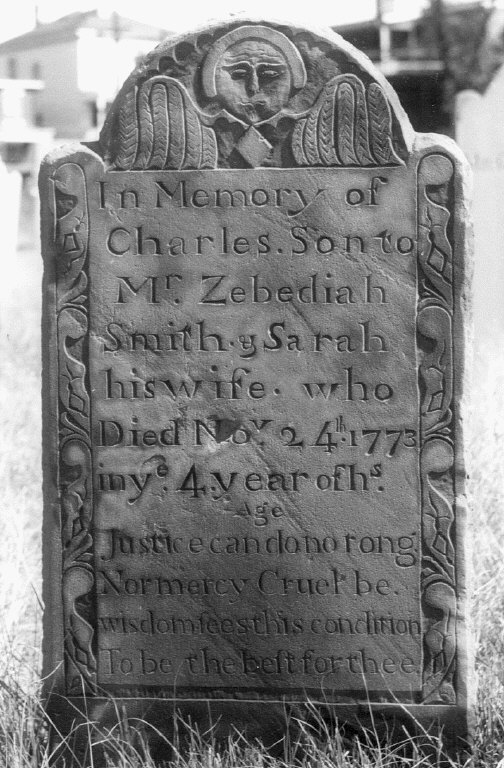 In Memory of
Charles. Son to
Mr. Zebediah
Smith. & Sarah
his wife. who
Died Nov. 24th. 1773
in ye. 4. year of hs.
Age
Justice can do no rong
Nor mercy Cruel be.
wisdom ſees this condition
To be the beſt for thee.